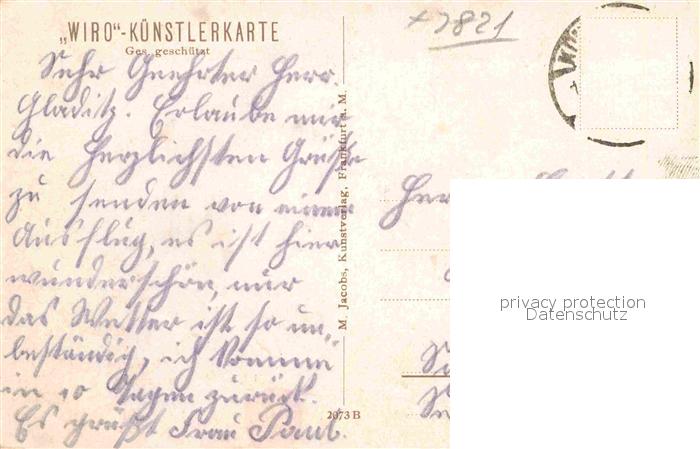 „WIRO“-KÜNSTLERKARTE
Ges. geschützt
+7821
Sehr Geehrter Herr
Gladitz. Erlaube mir
die herzlichsten Grüße
zu senden von einem
Ausflug, es ist hier
wunderschön, nur
das Wetter ist so un-
beständig, ich komme
in 10 Tagen zurück.
Es grüßt Frau Paul.
M. Jacobs, Kunstverlag, Frankfurt a. M.
2073 B
Herr
privacy protection
Datenschutz